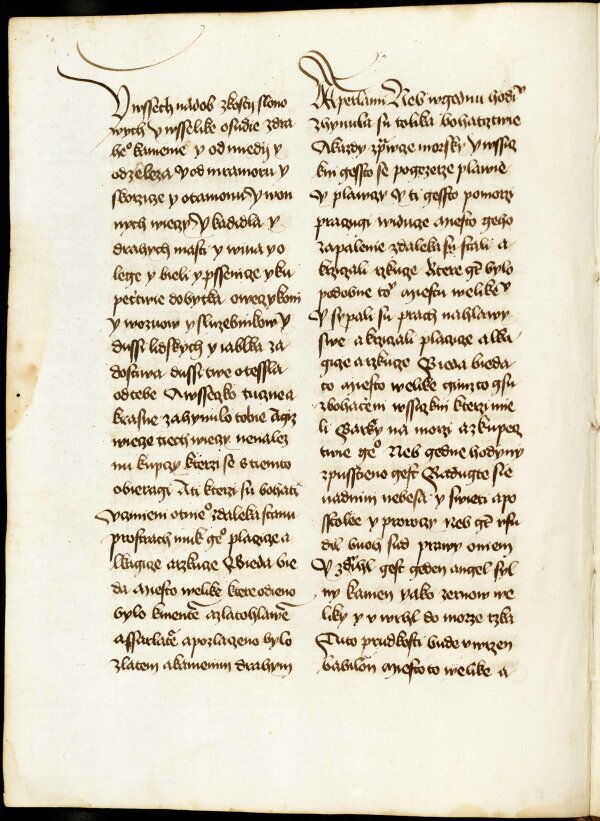 Vwssech nadob zkosti slono
wych y wsselike osudie zdra
heº kamene y od miedij y
odzeleza y od mramoru y
skorzicze y otamonu y won
nych wieczy y kadidla y
drahych masti y wina y o
lege y bieli y pssenicze y ku
pectwie dobytka owecz y koni
y wozuow y sluzebnikow y
dussi lidskych y iablka za
dostiwa dussi twe otessla
od tebe A wsseczko tuczne a
krasne zahynulo tobie A giz
wiecze tiech wieczy nenalez
nu kupczy kterzi se s tiemto
obieragi A ti kterzi su bohati
vczineni otneº zdaleka stanu
pro strach muk geº placzicze a
lkagicze a rzkucze Bieda bie
da miesto welike ktere odieno
bylo kmentē a zlatohlawē
a ssarlatē a pozlaczeno bylo
zlatem a kamenim drahym
A perlami Neb w gednu hodiᵘ
zhynula su tolika bohatztwie
A kazdy zprawcze morsky y wssicz
kni gessto se pogezerze plawie
y plawczy y ti gessto po morzi
pracugi widucze miesto geho
zapalenie zdaleka su stali a
krziczali rzkucze Ktere gt bylo
podobne toᵘ miestu welikeᵘ
y sypali su prach na hlawy
swe a krziczali placzicze a lka
gicze a rzkucze Bieda bieda
to miesto welike gimzto gsu
zbohaceni wssiczkni kterzi mie
li Barky na morzi a z kupecz
twie geº Neb gedne hodiny
zpusstieno gest Radugte sie
nadnim nebesa y swieti apo
sstolee y proroczy neb gt vsu
dil buoh sud prawy o niem
y zdwihl gest geden angel syl
ny kamen yako zernow we
liky y vwrhl do morze rzka
Tuto prudkosti bude vwrzen
babilon miesto to welike a